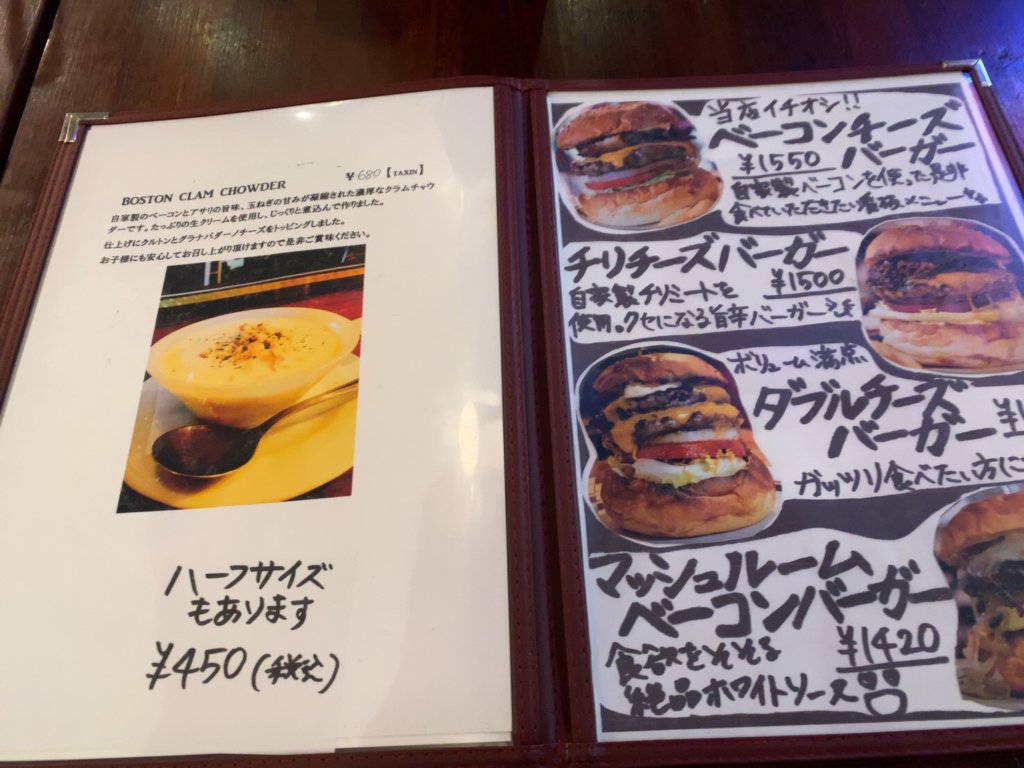 BOSTON CLAM CHOWDER ¥680【TAXIN】
自家製のベーコンとアサリの旨味、玉ねぎの甘みが凝縮された濃厚なクラムチャウ
ダーです。たっぷりの生クリームを使用し、じっくりと煮込んで作りました。
仕上げにクルトンとグラナパダーノチーズをトッピングしました。
お子様にも安心してお召し上がり頂けますので是非ご賞味ください。
ハーフサイズ
もあります
¥450(税込)
当店イチオシ!!
ベーコンチーズ
¥1550 バーガー
自家製ベーコンを使った是非
食べていただきたい看板メニュー
チリチーズバーガー
¥1500
自家製チリミートを
使用。クセになる旨辛バーガー
ボリューム満点
ダブルチーズ
バーガー
ガッツリ食べたい方に
マッシュルーム
ベーコンバーガー
¥1420
食欲をそそる
絶品ホワイトソース